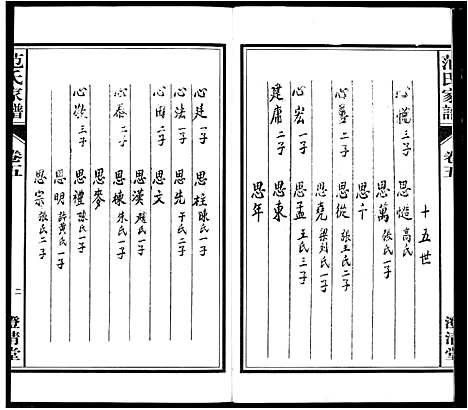 范氏家譜
卷五
澄清堂
十五世
心 三子 思 高氏
思萬 張氏一子
思
心 二子 思從 張王氏二子
思堯 梁刘氏一子
心宏 一子 思孟 王氏三子
建庸 二子 思東
思年
心廷 一子 思柱 陳氏一子
心法 一子 思先 于氏二子
心田 二子 思文
思漢 趙氏一子
心泰 二子 思棟 朱氏一子
思麥
心 三子 思禮 陳氏一子
思明 許黄氏一子
思宗 張氏二子
范氏家譜
卷五
二
澄清堂